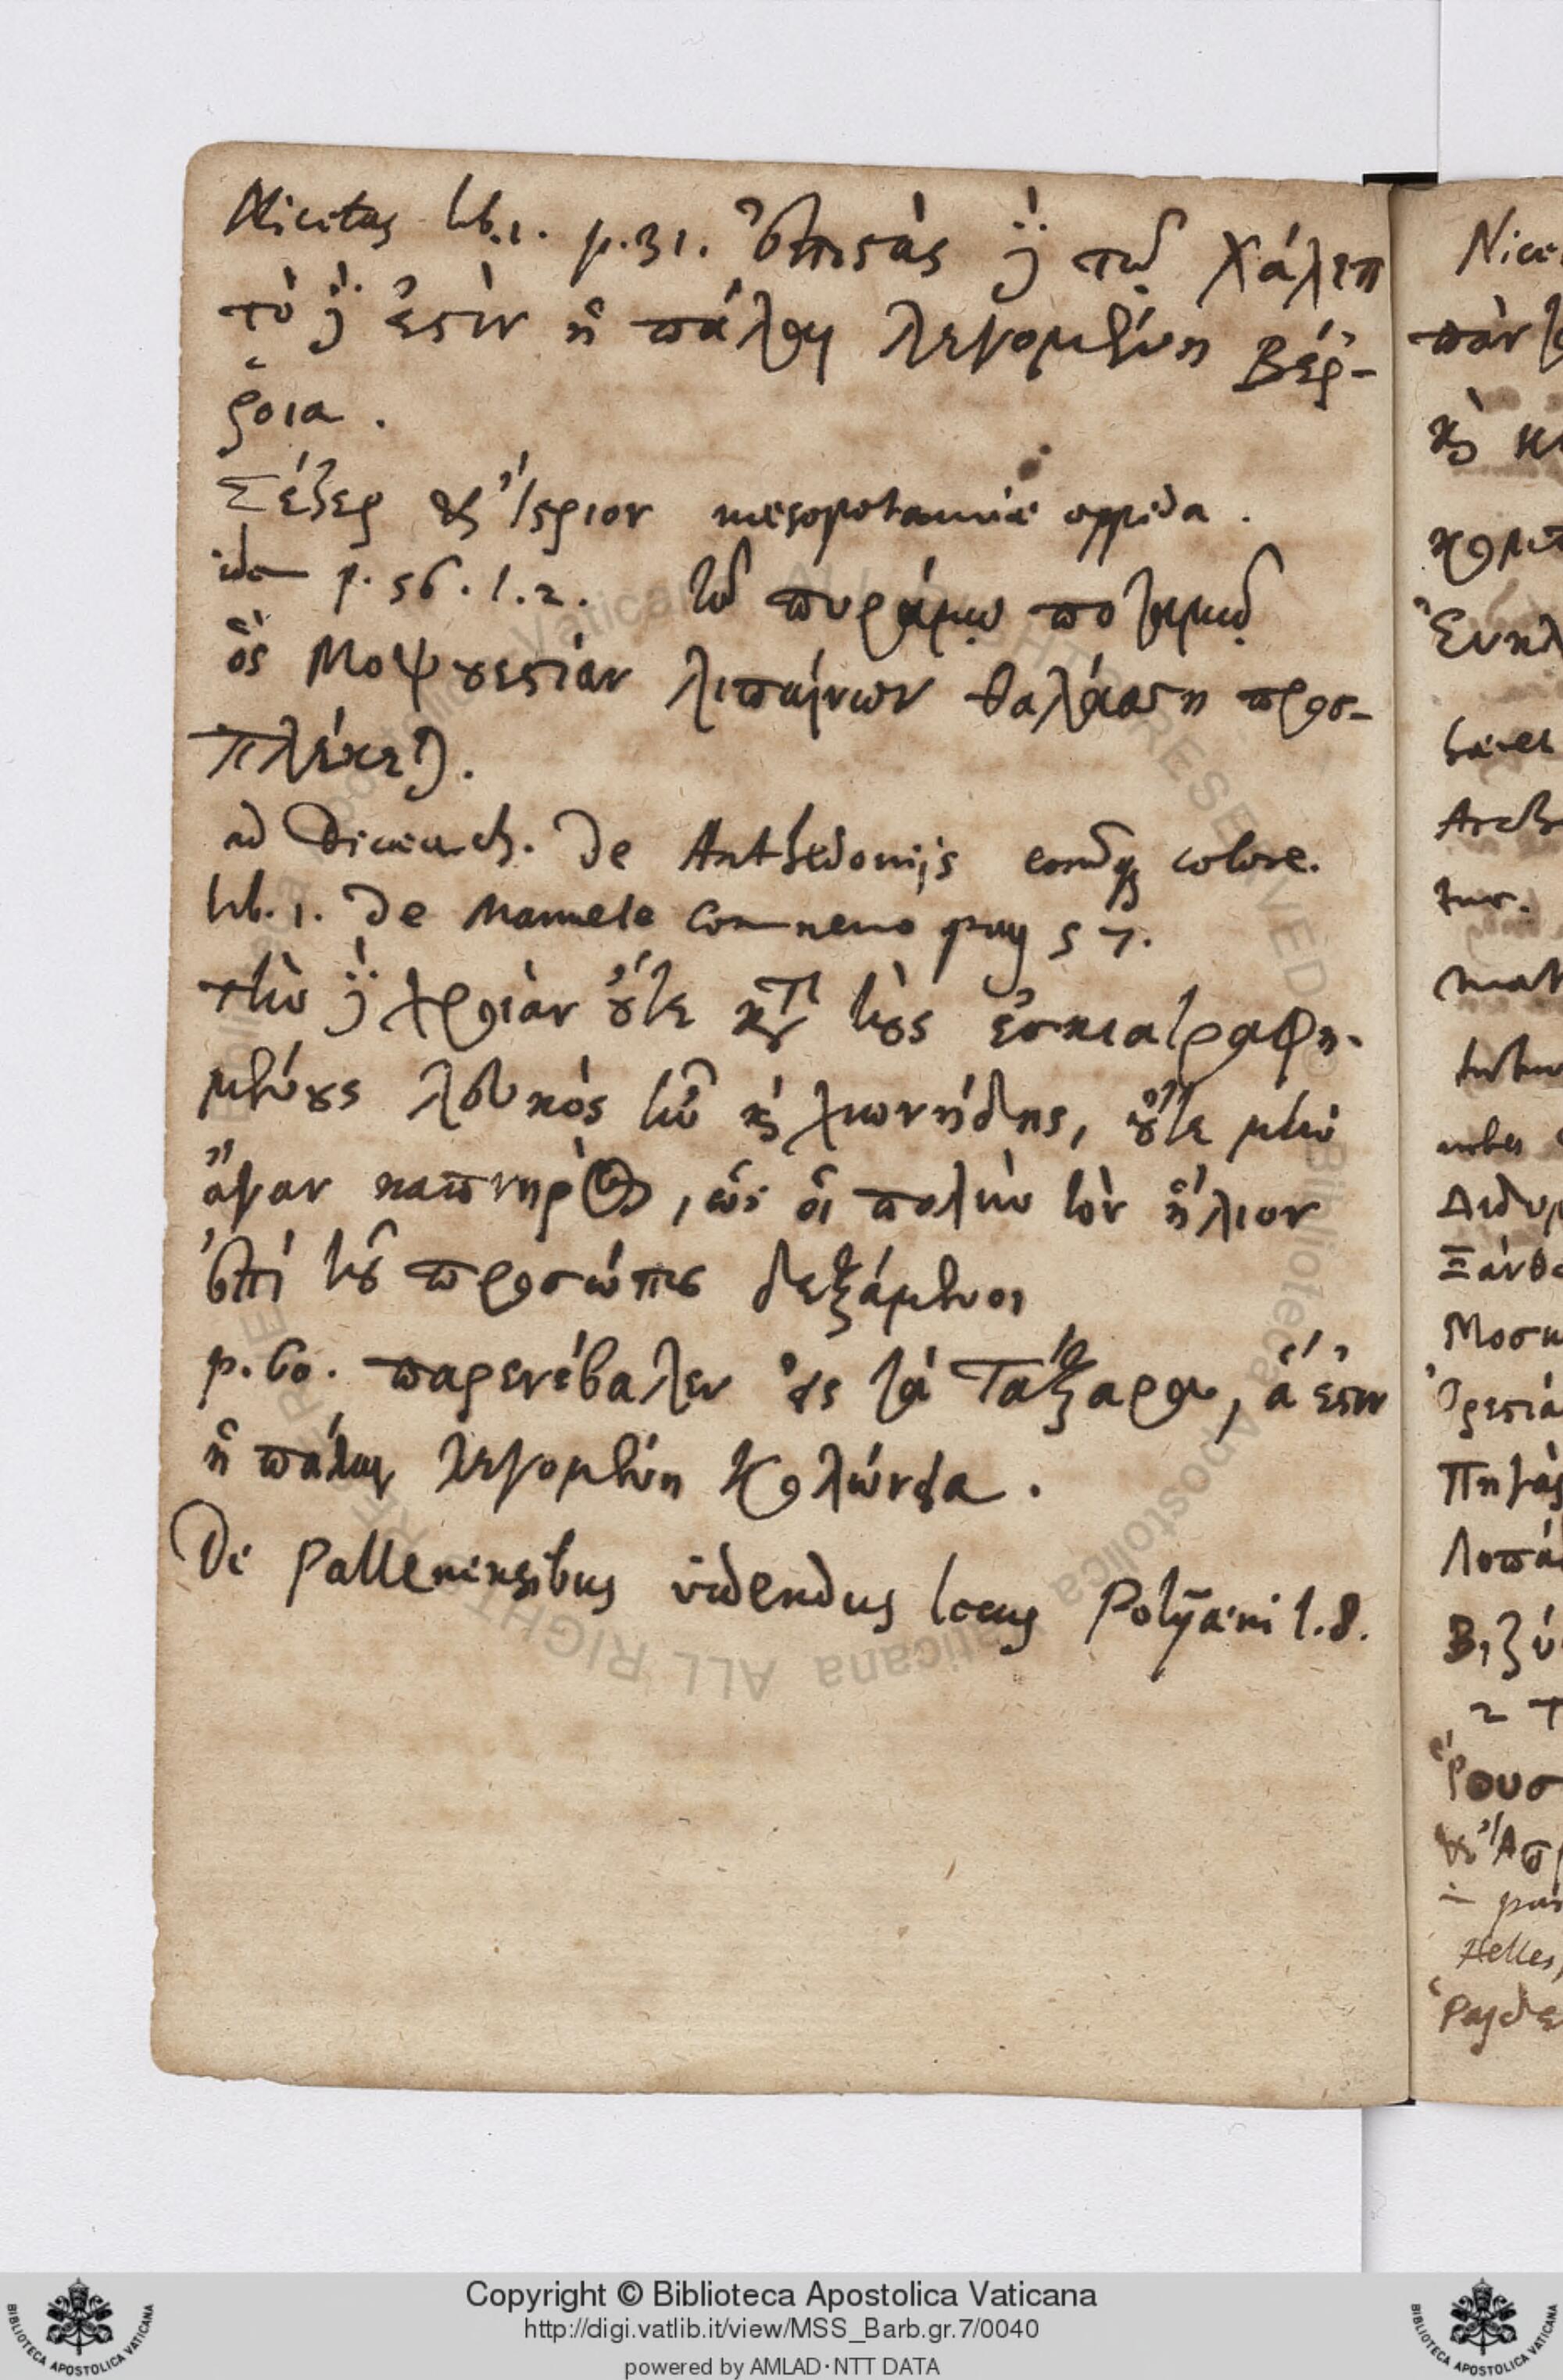 Nicetas lib. 1. p. 31. ἐπιστὰς δὲ τῷ Χάλεπ
τὸ δέ ἐστιν ἡ πάλαι λεγομένη Βέρ-
ῥοια.
Σέζερ καὶ Ἴστριον mesopotamiæ oppida.
idem p. 56. l. 2. τῷ πυράμῳ ποταμῷ
ὃς Μοψουεστίαν λιπαίνων θαλάσσῃ προσ-
πλέκεται.
ad Dicæarch. De Anthedonijs eorumq; colore.
lib. 1. De Manuele Comneno pag 57.
τὴν δὲ χροιὰν οὔτε κατὰ τοὺς ἐσκιατραφη-
μένους λευκὸς ἦν καὶ χιονώδης, οὔτε μὴν
ἄγαν καπνηρὸς, ὡς οἱ πολὺν τὸν ἥλιον
ἐπὶ τοῦ προσώπου δεξάμενοι
p. 60. παρενέβαλεν εἰς τὰ Τάξαρα, ἅ ἐστιν
ἡ πάλαι λεγομένη Κολώνεια.
De Pallenensibus videndus locus Polyæni l. 8.
Nice
πὰν
καὶ
Ἐν
Arch
tur.
Διδυμ
Ξάνθ
Μοσυ
Ὀρεστιά
Πηγὰς
Λοπά
Βιζύ
Ῥουσ
Copyright © Biblioteca Apostolica Vaticana
http://digi.vatlib.it/view/MSS_Barb.gr.7/0040
powered by AMLAD·NTT DATA
BIBLIOTECA APOSTOLICA VATICANA
BIBLIOTECA APOSTOLICA VATICANA